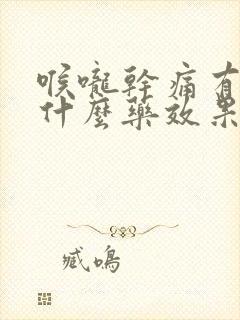 喉嚨幹痛有
什麼藥效果
臧鳴